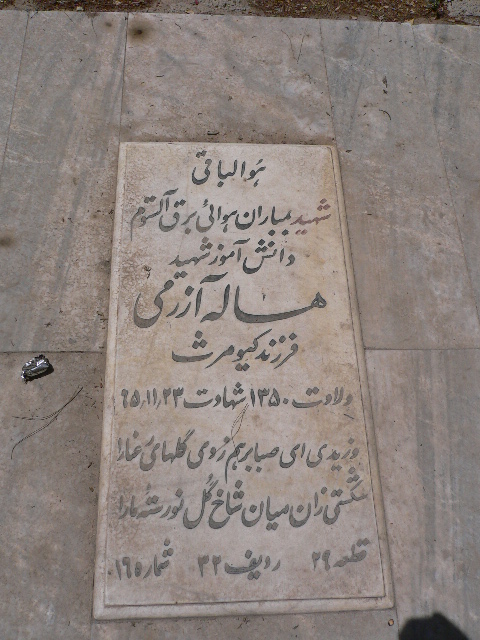 هوالباقی
شهید بمباران هوائی برق آلستوم
دانش آموز شهید
هاله آزرمی
فرزند کیومرث
ولادت ۱۳۵۰ شهادت ۶۵/۱۱/۲۳
وزیدی ای صبا برهم زدی گلهای رعنا را
شکستی زان میان شاخ گل نورسته ما را
قطعه ۲۹ ردیف ۳۲ شماره ۱۶